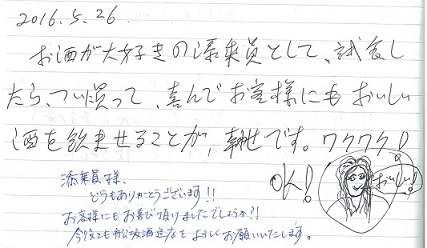 2016.5.26
お酒が大好きの添乗員として、試食し
たら、つい買って、喜んでお客様にもおいしい
酒を飲ませることが、幸せです。ワクワク!
OK!
おいしい!
添乗員様、
どうもありがとうございます!!
お客様にもお喜び頂けましたでしょうか?!
今後とも松坂酒造店をよろしくお願いいたします。